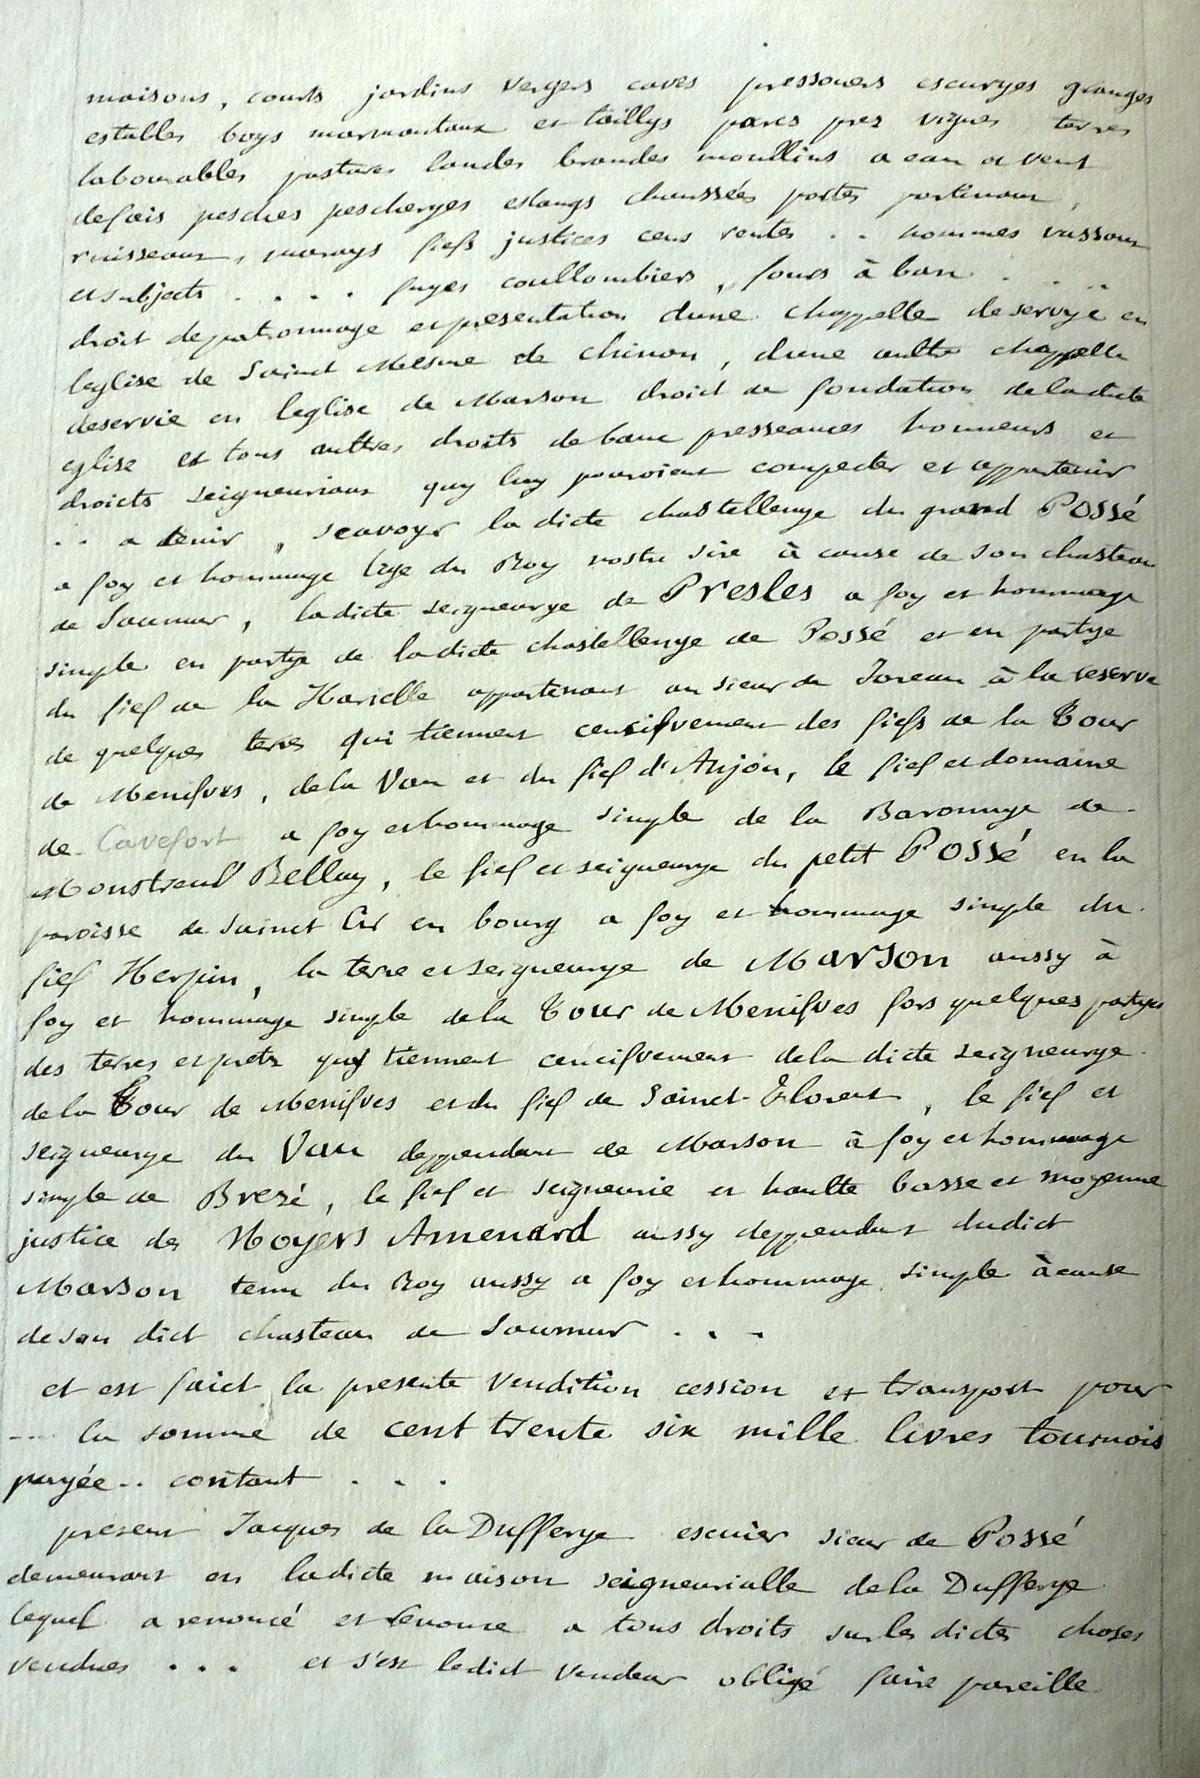 maisons, courts jardins vergers caves pressouers escuryes granges
estalles boys marmentaux et taillys parcs prez vignes terres
labourables pastures landes brandes moullins a eau a vent
defais pesches pescheryes estangs chaussées portes portineaux,
ruisseaux, marays fiefs justices cens rentes .. hommes vassaux
et subjects .... fuyes coullombiers, fours à ban . . ..
droit de patronnage et presentation dune chappelle deservye en
leglise de Sainct Mesme de Chinon, dune aultre chappelle
deservie en leglise de Marson droict de fondation de la dicte
eglise et tous aultres droits de banc presseances honneurs et
droicts seigneuriaux quy luy pouroient compecter et appartenir
.. a tenir, scavoyr la dicte chastellenye du grand Possé
a foy et hommage lige du Roy nostre sire à cause de son chasteau
de Saumur, la dicte seigneurye de Presles a foy et hommage
simple en partye de la dicte chastellenye de Possé et en partye
du fief de la Harielle appartenant au sieur de Jareau à la reserve
de quelques terres qui tiennent censifvement des fiefs de la Tour
de Menifves, de la Vau et du fief d'Anjou, le fief et domaine
de Cavefort a foy et hommage simple de la Baronnye de
Monstreuil Bellay, le fief et seigneurye du petit Possé en la
paroisse de Sainct Cir en bourg a foy et hommage simple du
fief Herpin, la terre et seigneurye de Marson aussy à
foy et hommage simple de la Tour de Menifves fors quelques partyes
des terres et prets quy tiennent cencifvement de la dicte seigneurye
de la Tour de Menifves et du fief de Sainct-Florent, le fief et
seigneurye du Vau deppendant de Marson à foy et hommage
simple de Brezé, le fief et seigneurie et haulte basse et moyenne
justice des Noyers Amenard aussy deppendant dudict
Marson tenu du Roy aussy a foy et hommage simple à cause
de son dict chasteau de Saumur . . .
et est faict la presente vendition cession et transport pour
... la somme de cent trente six mille livres tournois
payée .. contant . . .
present Jacques de la Dufferye escuier sieur de Possé
demeurant en la dicte maison seigneurialle de la Dufferye
lequel a renoncé et renonce a tous droits sur les dictes choses
vendues . . . et s'est ledict vendeur obligé faire pareille